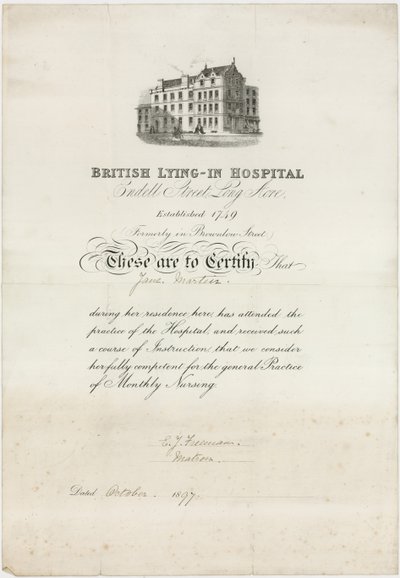 BRITISH LYING-IN HOSPITAL
Endell Street, Long Acre,
Established 1749
(Formerly in Brownlow Street)
These are to Certify That
Jane Martin
during her residence here, has attended the
practice of the Hospital, and received such
a course of Instruction, that we consider
her fully competent for the general Practice
of Monthly Nursing.
E. J. Freeman.
Matron.
Dated October. 1897